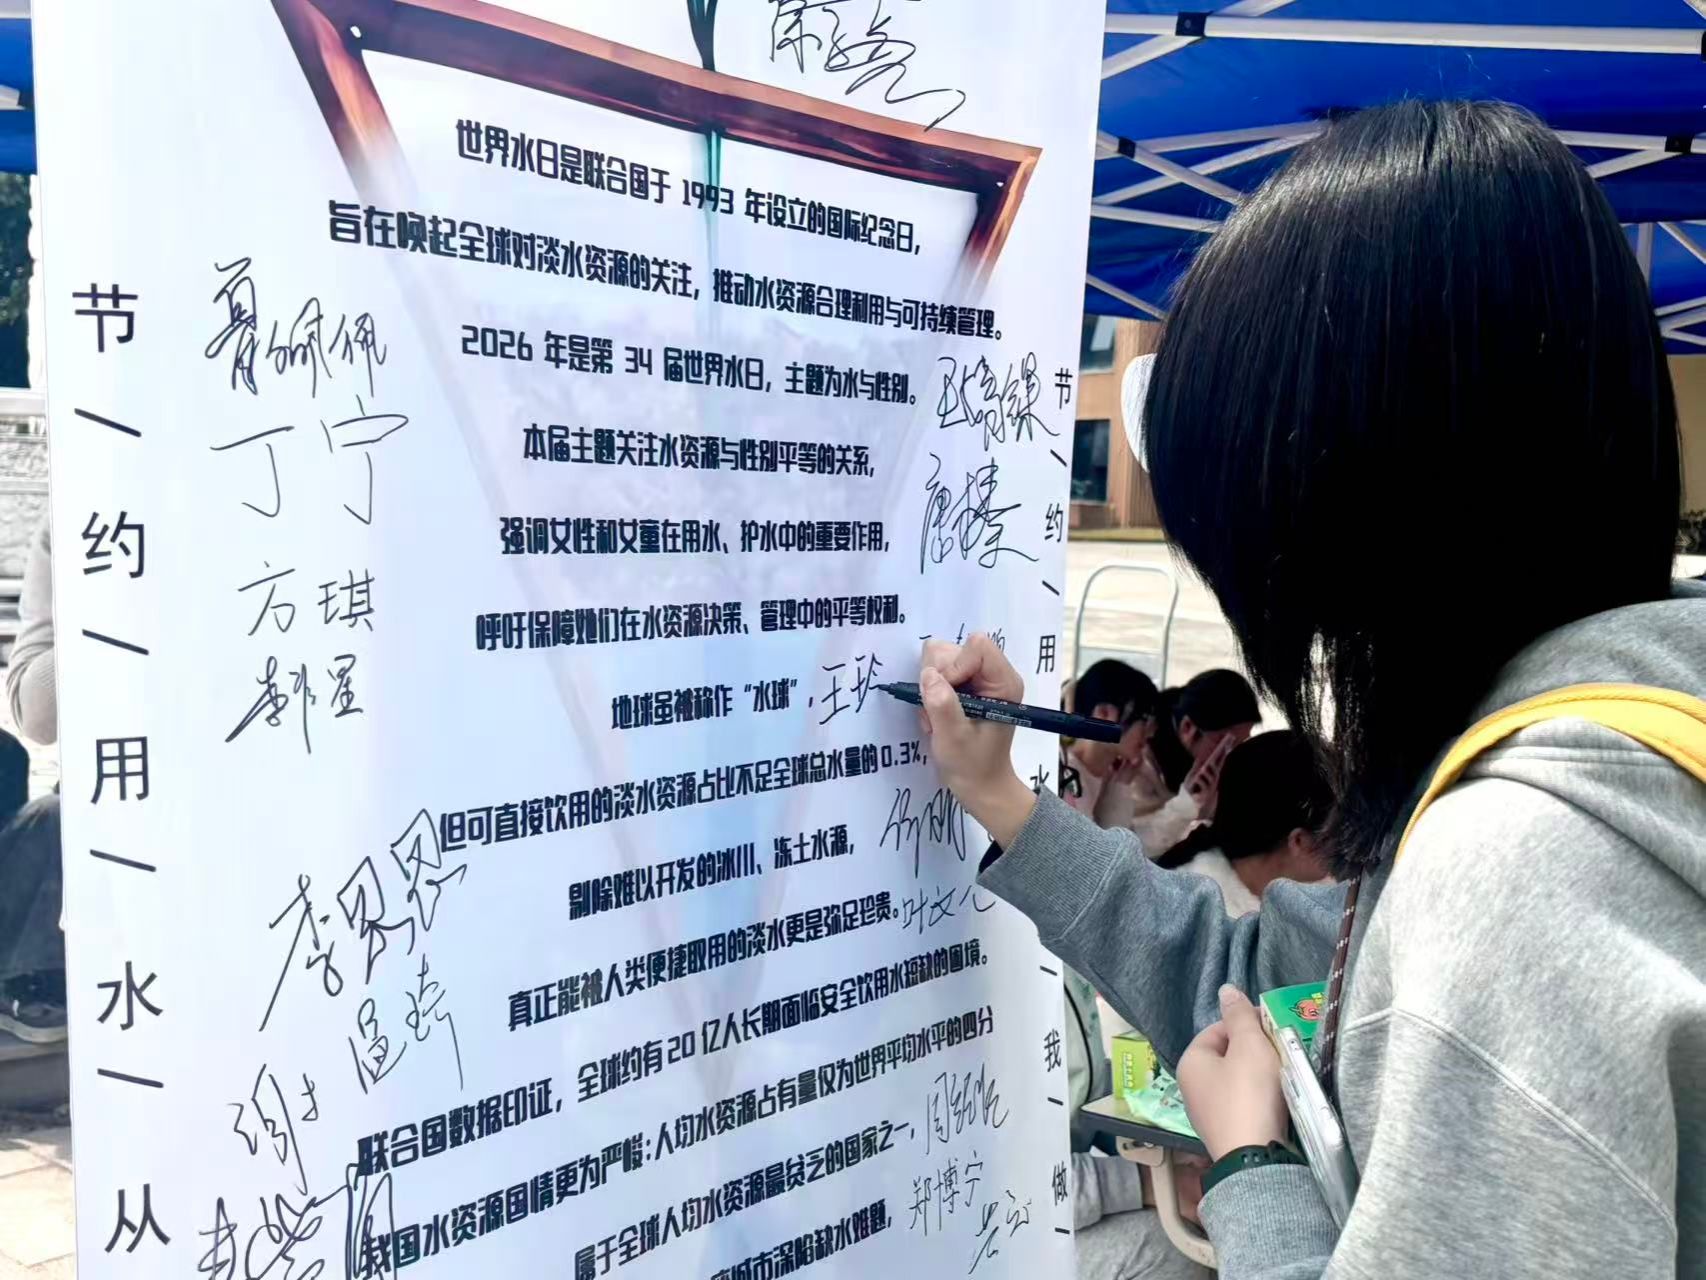 世界水日是联合国于 1993 年设立的国际纪念日，
旨在唤起全球对淡水资源的关注，推动水资源合理利用与可持续管理。
2026 年是第 34 届世界水日，主题为水与性别。
本届主题关注水资源与性别平等的关系，
强调女性和女童在用水、护水中的重要作用，
呼吁保障她们在水资源决策、管理中的平等权利。
地球虽被称作“水球”，
但可直接饮用的淡水资源占比不足全球总水量的0.3%，
剔除难以开发的冰川、冻土水源，
真正能被人类便捷取用的淡水更是弥足珍贵。
联合国数据印证，全球约有20亿人长期面临安全饮用水短缺的困境。
我国水资源国情更为严峻：人均水资源占有量仅为世界平均水平的四分
属于全球人均水资源最贫乏的国家之一，
城市深陷缺水难题，
节/约/用/水/从
节/约/用/水/我/做/
丁宁
方琪
李星
李思思
温琦
谢
王珍
唐榛
叶文
郑博宁